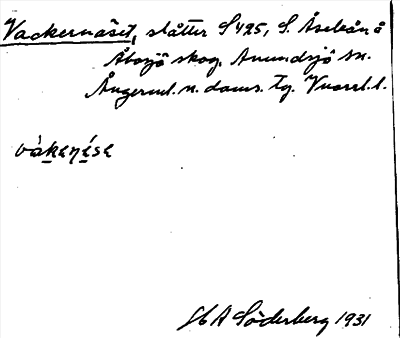 Vackernäset, slåtter S 425, S. Åseleån å
Åborjö skog, Anundsjö sn.
Ångerml. n. doms. Tg.
vákenése
H A Söderberg 1931